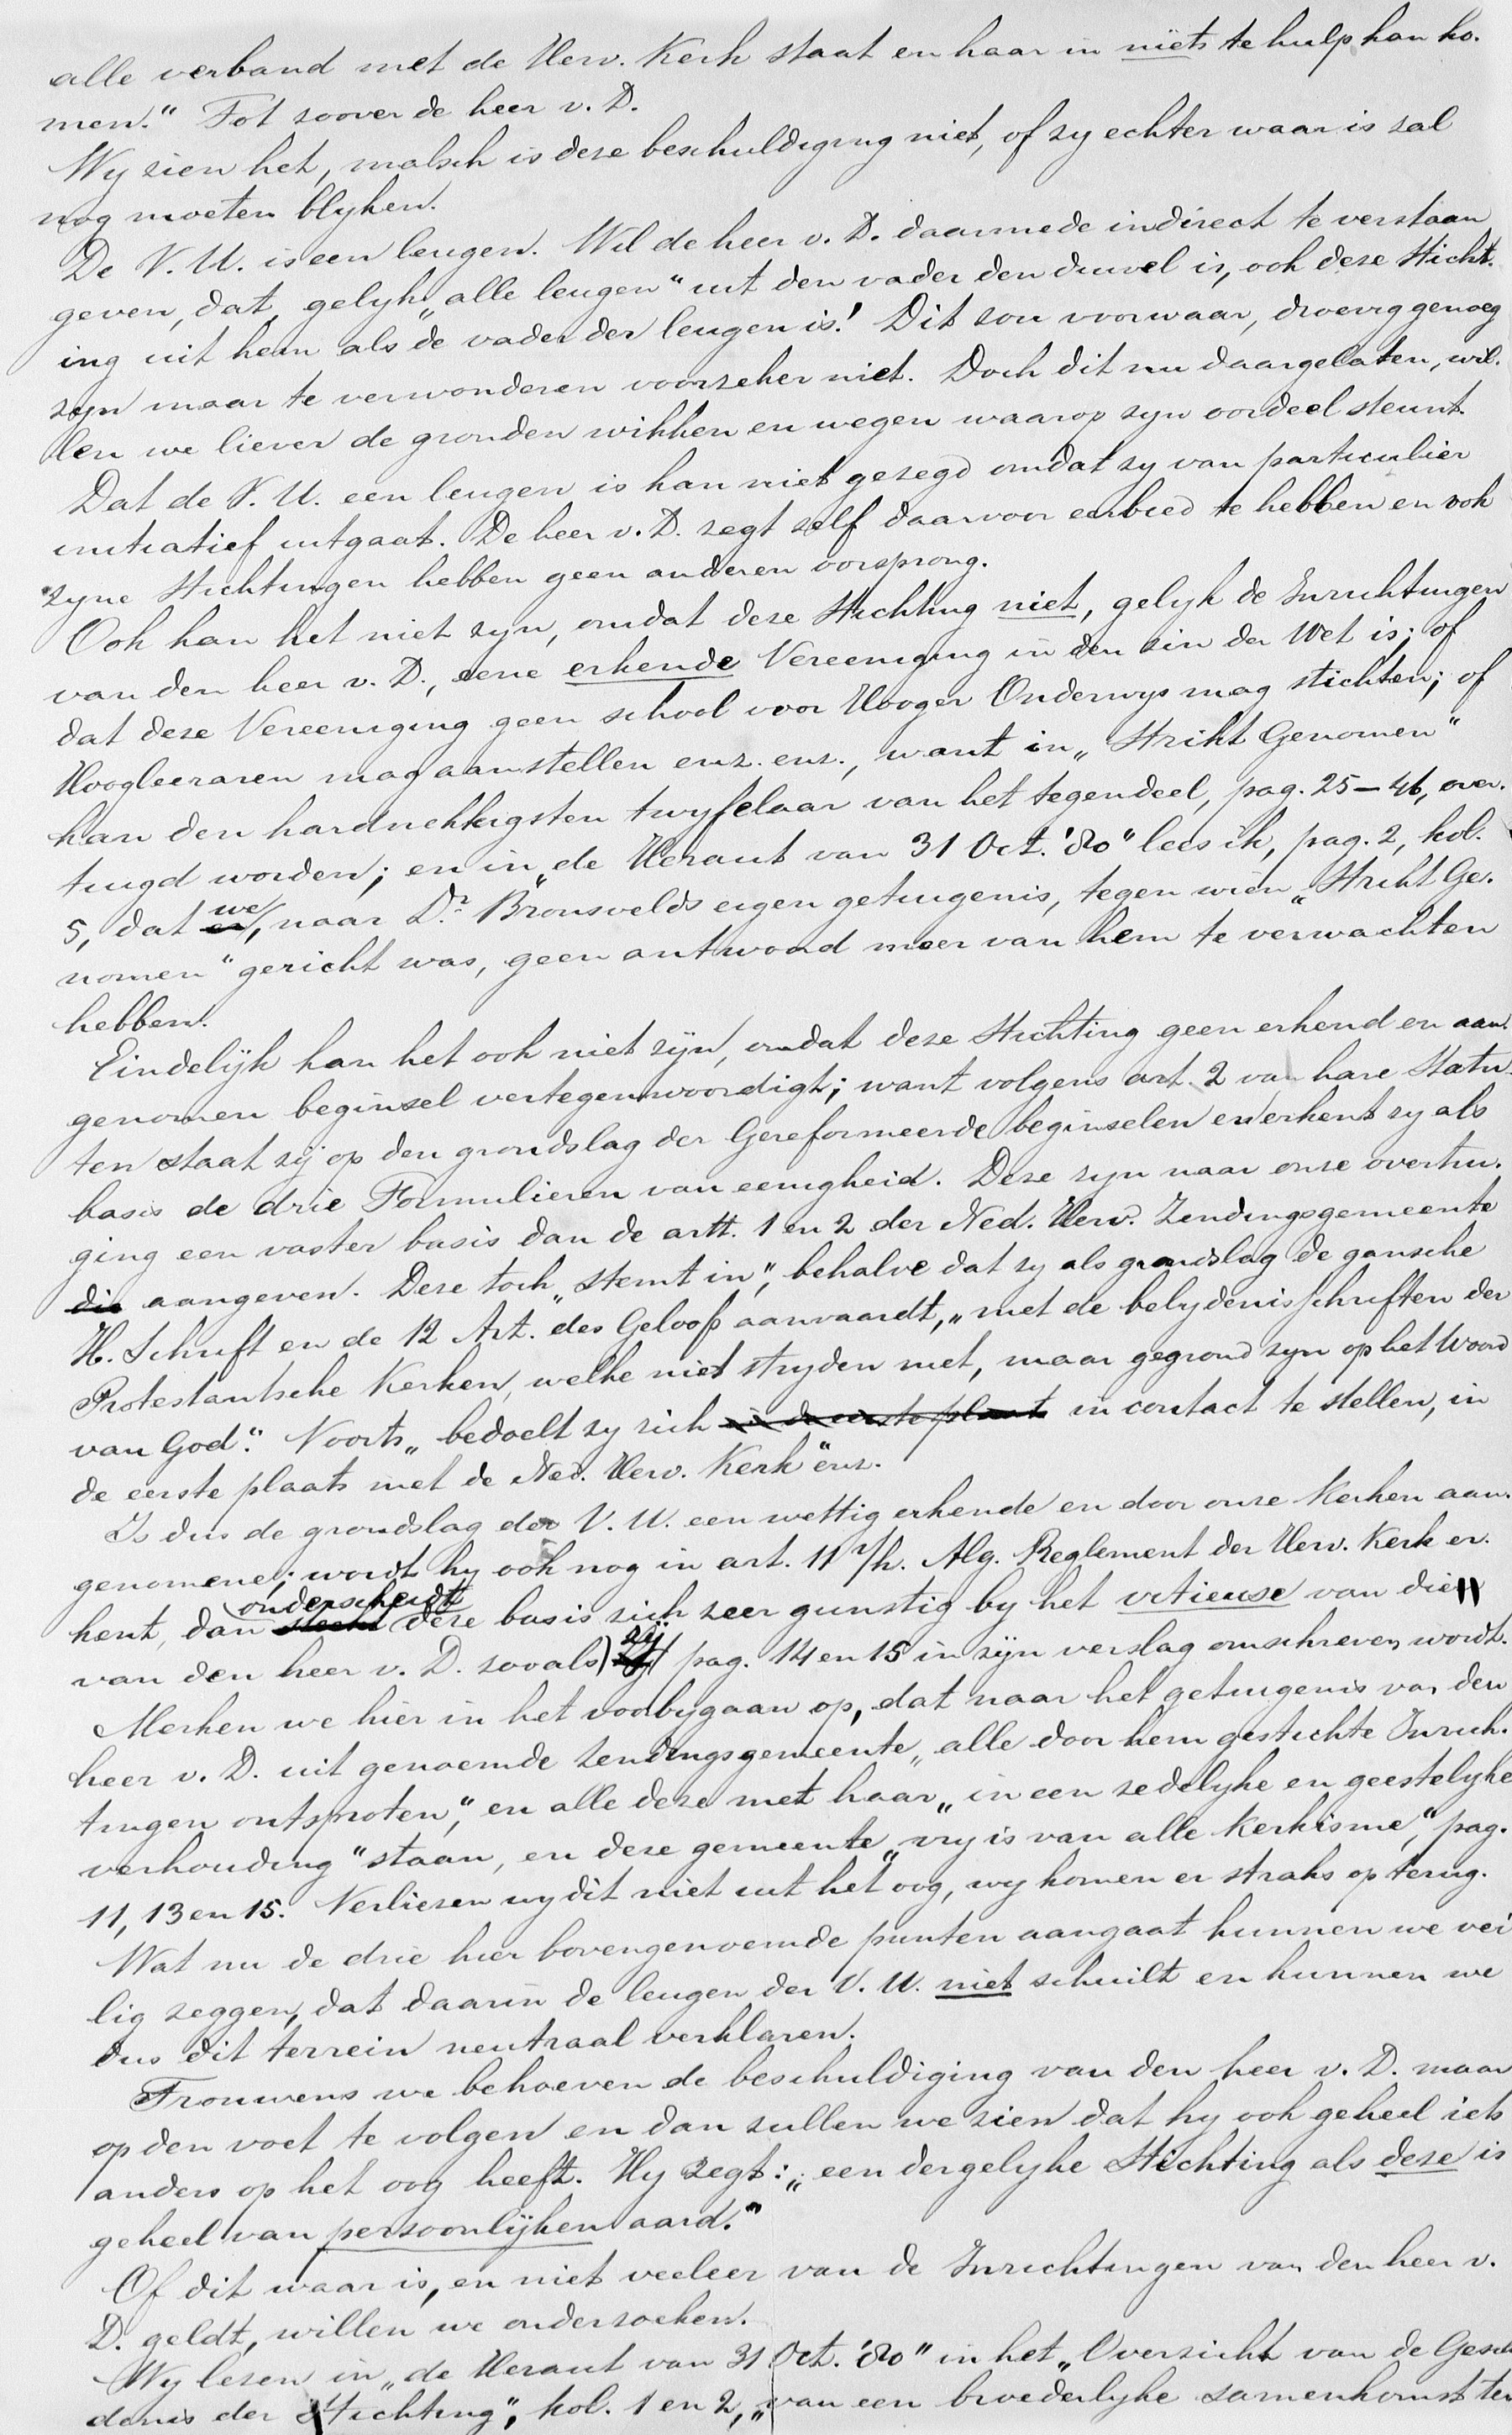 alle verband met de Herv. Kerk staat en haar in niets te hulp kan ko-
men." Tot zoover de heer v. D.
Wy zien het, malsch is deze beschuldiging niet, of zy echter waar is zal
nog moeten blyken.
De V. U. is een leugen. Wil de heer v. D. daarmede indirect te verstaan
geven, dat, gelyk "alle leugen" uit den vader den duivel is, ook deze Sticht-
ing uit hem als de vader der leugen is! Dit zou voorwaar, droevig genoeg
zyn maar te verwonderen voorzeker niet. Doch dit nu daargelaten, wil-
len we liever de gronden wikken en wegen waarop zyn oordeel steunt.
Dat de V. U. een leugen is kan niet gezegd omdat zy van particulier
initiatief uitgaat. De heer v. D. zegt zelf daarvoor eerbied te hebben en ook
zyne Stichtingen hebben geen anderen oorsprong.
Ook kan het niet zyn, omdat deze Stichting niet, gelyk de Inrichtingen
van den heer v. D., eene erkende Vereeniging in den zin der Wet is; of
dat deze Vereeniging geen school voor Hooger Onderwys mag stichten; of
Hoogleeraren mag aanstellen enz. enz., want in „Strikt Genomen"
kan den hardnekkigsten twyfelaar van het tegendeel, pag. 25-46, over-
tuigd worden; en in „de Heraut van 31 Oct. '80" lees ik, pag. 2, kol.
5, dat we, naar Dr. Bronsvelds eigen getuigenis, tegen wien „Strikt Ge-
nomen" gericht was, geen antwoord meer van hem te verwachten
hebben.
Eindelijk kan het ook niet zijn, omdat deze Stichting geen erkend en aan-
genomen beginsel vertegenwoordigt; want volgens art. 2 van hare Statu-
ten staat zij op den grondslag der Gereformeerde beginselen en erkent zy als
basis de drie Formulieren van eenigheid. Deze zyn naar onze overtui-
ging een vaster basis dan de artt. 1 en 2 der Ned. Herv. Zendingsgemeente
die aangeven. Deze toch „stemt in", behalve dat zy als grondslag de gansche
H. Schrift en de 12 Art. des Geloofs aanvaardt, „met de belydenisschriften der
Protestantsche Kerken, welke niet stryden met, maar gegrond zyn op het Woord
van God." Voorts „bedoelt zy zich in de eerste plaats in contact te stellen, in
de eerste plaats met de Ned. Herv. Kerk" enz.
Is dus de grondslag der V. U. een wettig erkende en door onze Kerken aan-
genomene; wordt hy ook nog in art. 11 v/h. Alg. Reglement der Herv. Kerk er-
kent, dan onderscheidt deze basis zich zeer gunstig by het vitieuse van dien
van den heer v. D. zooals zij pag. 14 en 15 in zijn verslag omschreven wordt.
Merken we hier in het voorbygaan op, dat naar het getuigenis van den
heer v. D. uit genoemde Zendingsgemeente „alle door hem gestichte Inrich-
tingen ontsproten," en alle deze met haar „in een zedelyke en geestelyke
verhouding" staan, en deze gemeente „vry is van alle Kerkisme," pag.
11, 13 en 15. Verliezen wy dit niet uit het oog, wy komen er straks op terug.
Wat nu de drie hier bovengenoemde punten aangaat kunnen we vei-
lig zeggen, dat daarin de leugen der V. U. niet schuilt en kunnen we
dus dit terrein neutraal verklaren.
Trouwens we behoeven de beschuldiging van den heer v. D. maar
op den voet te volgen en dan zullen we zien dat hy ook geheel iets
anders op het oog heeft. Hy zegt: „een dergelyke Stichting als deze is
geheel van persoonlijken aard."
Of dit waar is, en niet veeleer van de Inrichtingen van den heer v.
D. geldt, willen we onderzoeken.
Wy lezen in „de Heraut van 31 Oct. '80" in het „Overzicht van de Geschie
denis der Stichting", kol. 1 en 2, „van een broederlyke samenkomst ten